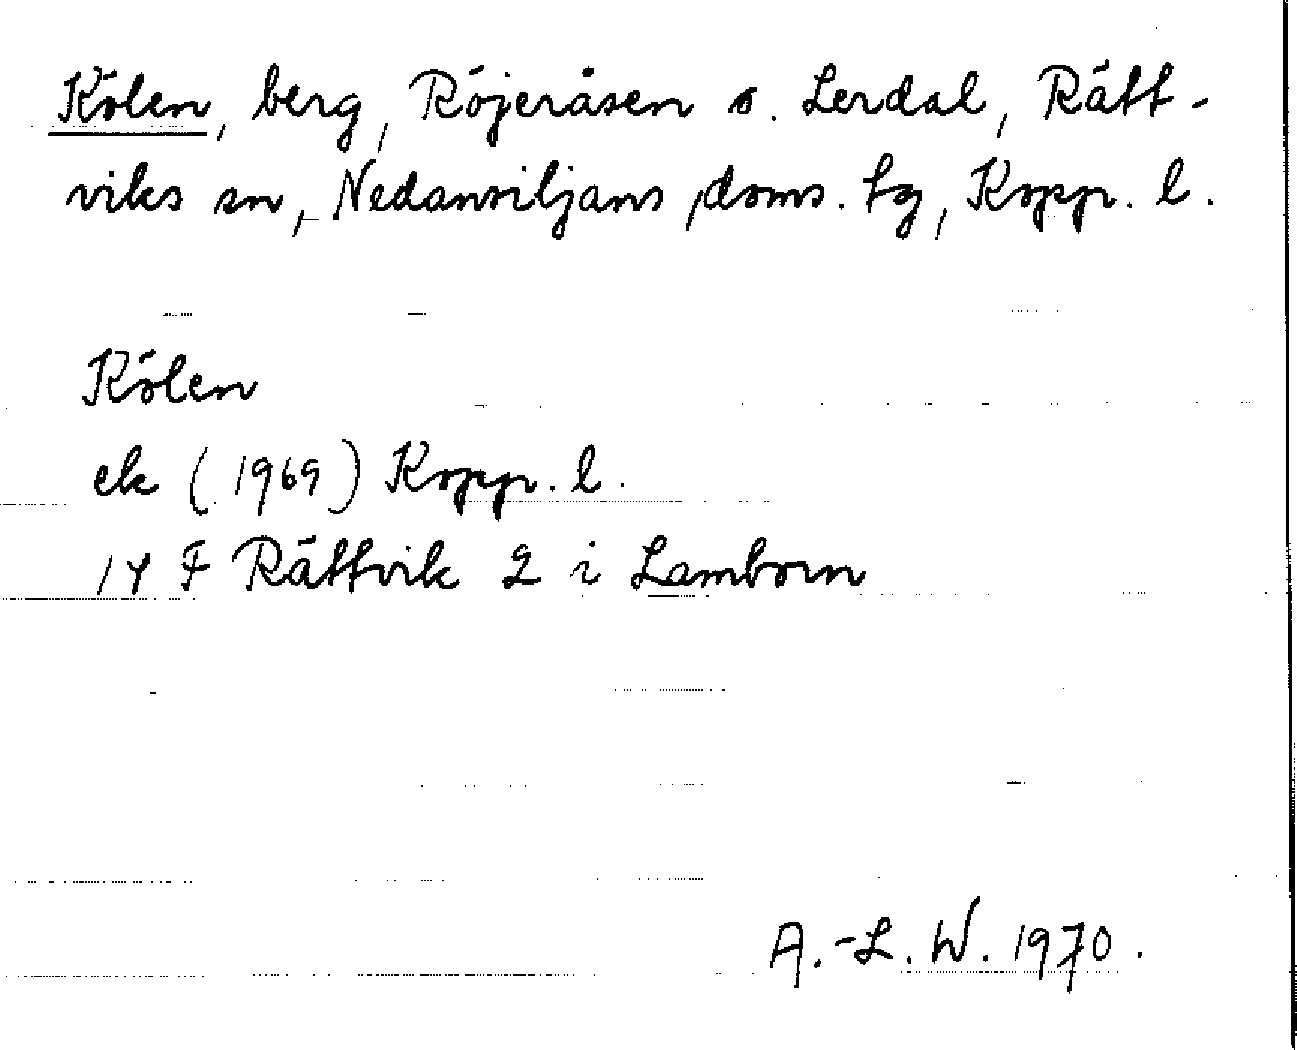 Kölen, berg, Röjeråsen o. Lerdal, Rätt-
viks sn, Nedansiljans doms. tg, Kopp. l.
Kölen
ek (1969) Kopp. l.
14 F Rättvik 2 i Lamborn
A.-L. W. 1970.